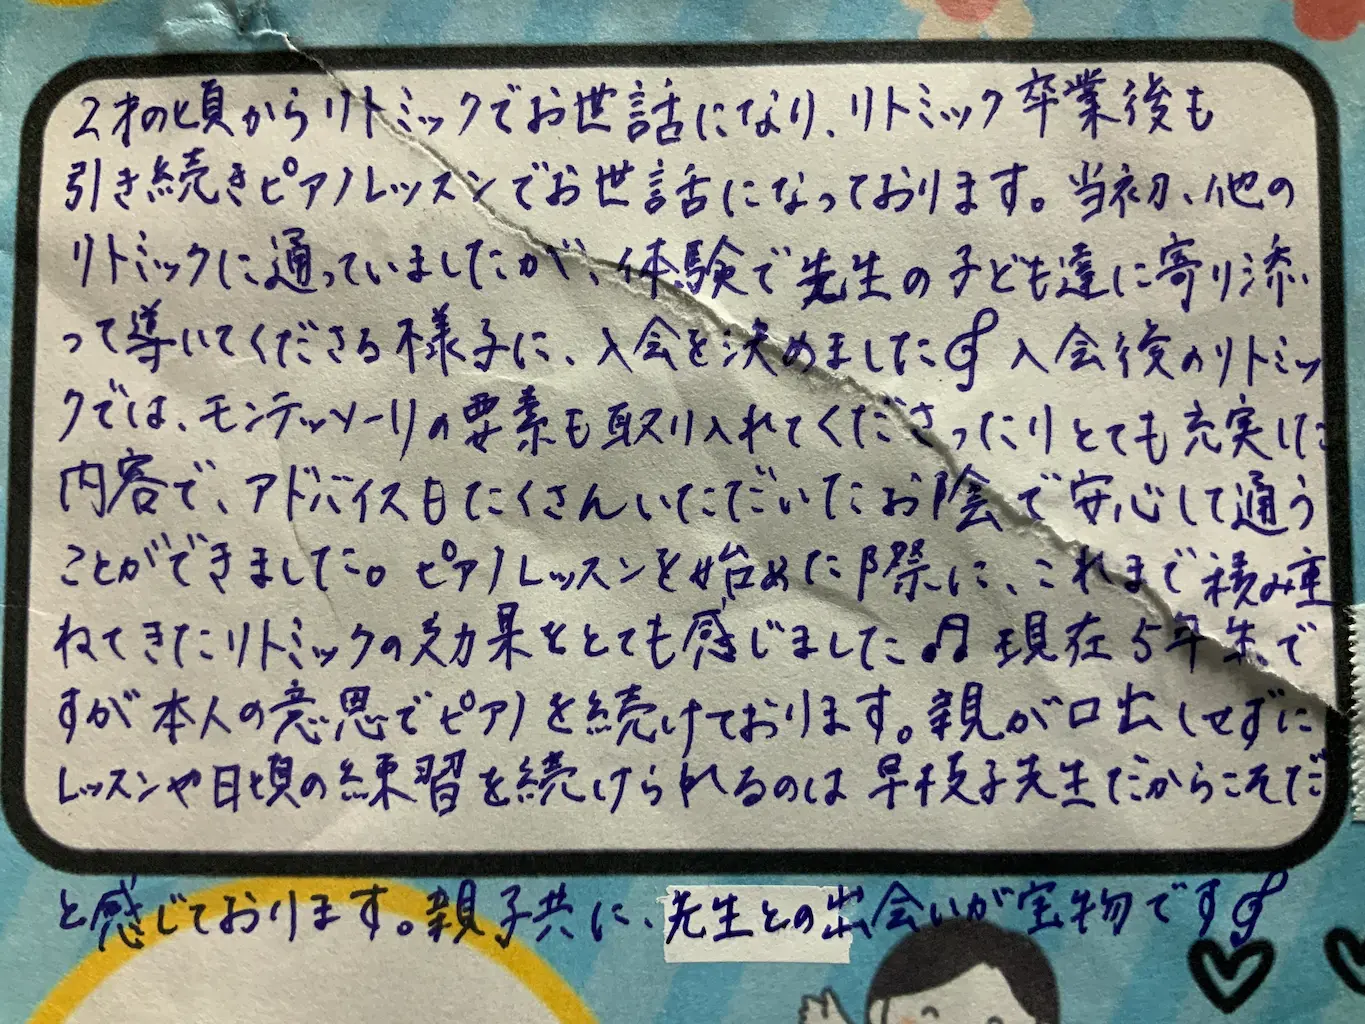 2才の頃からリトミックでお世話になり、リトミック卒業後も
引き続きピアノレッスンでお世話になっております。当初、他の
リトミックに通っていましたが、体験で先生の子ども達に寄り添
って導いてくださる様子に、入会を決めました𝄞 入会後のリトミッ
クでは、モンテッソーリの要素も取り入れてくださったりとても充実した
内容で、アドバイスもたくさんいただいたお陰で安心して通う
ことができました。ピアノレッスンを始めた際に、これまで積み重
ねてきたリトミックの効果をとても感じました♫ 現在5年生で
すが本人の意思でピアノを続けております。親が口出しせずに
レッスンや日頃の練習を続けられるのは早枝子先生だからこそだ
と感じております。親子共に、先生との出会いが宝物です𝄞